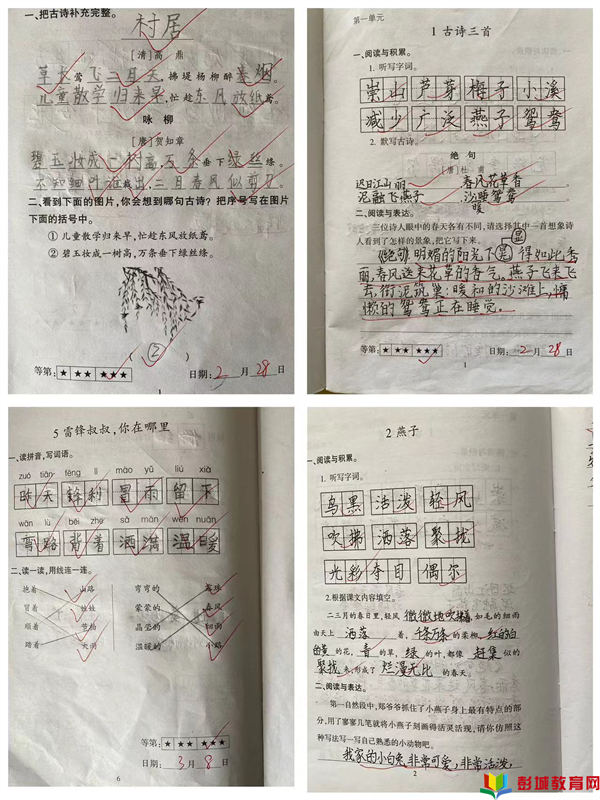 一、把古诗补充完整。
村居
[清]高鼎
草长莺飞二月天，拂堤杨柳醉春烟。
儿童散学归来早，忙趁东风放纸鸢。
咏柳
[唐]贺知章
碧玉妆成一树高，万条垂下绿丝绦。
不知细叶谁裁出，二月春风似剪刀。
二、看到下面的图片，你会想到哪句古诗？把序号写在图片
下面的括号中。
①儿童散学归来早，忙趁东风放纸鸢。
②碧玉妆成一树高，万条垂下绿丝绦。
（②）
等第：★★★★★★ 日期：2月28日
1
第一单元
1 古诗三首
一、阅读与积累。
1. 听写字词。
崇山 芦芽 梅子 小溪
减少 广泛 燕子 鸳鸯
2. 默写古诗。
绝句
[唐]杜甫
迟日江山丽，春风花草香。
泥融飞燕子，沙暖睡鸳鸯。
二、阅读与表达。
三位诗人眼中的春天各有不同，请选择其中一首想象诗
人看到了怎样的景象，把它写下来。
《绝句》明媚的阳光下显得如此秀
丽，春风送来花草的香气。燕子飞来飞
去，衔泥筑巢；暖和的沙滩上，慵
懒的鸳鸯正在睡觉。
等第：★★★★★★ 日期：2月28日
1
5 雷锋叔叔，你在哪里
一、读拼音，写词语。
zuó tiān fēng lì mào yǔ liú xià
昨天 锋利 冒雨 留下
wān lù bēi zhe sǎ mǎn wēn nuǎn
弯路 背着 洒满 温暖
二、读一读，用线连一连。
抱着 山路 弯弯的 露珠
冒着 娃娃 蒙蒙的 春风
顺着 荆棘 晶莹的 细雨
踏着 大雨 温暖的 小路
等第：★★★★★★
日期：3月8日
6
2 燕子
一、阅读与积累。
1. 听写字词。
乌黑 活泼 轻风
吹拂 洒落 聚拢
光彩夺目 偶尔
2. 根据课文内容填空。
二三月的春日里，轻风微微地吹拂着，如毛的细雨
由天上洒落着，千条万条的柔柳，红的白
的黄的花，青的草，绿的叶，都像赶集似的
聚拢来，形成了烂漫无比的春天。
二、阅读与表达。
第一自然段中，郑爷爷抓住了小燕子身上最有特点的部
分，用了寥寥几笔就将小燕子刻画得活灵活现，请你仿照这
种写法写一写自己熟悉的小动物吧。
我家的小白兔非常可爱，非常活泼，
2
彭城教育网